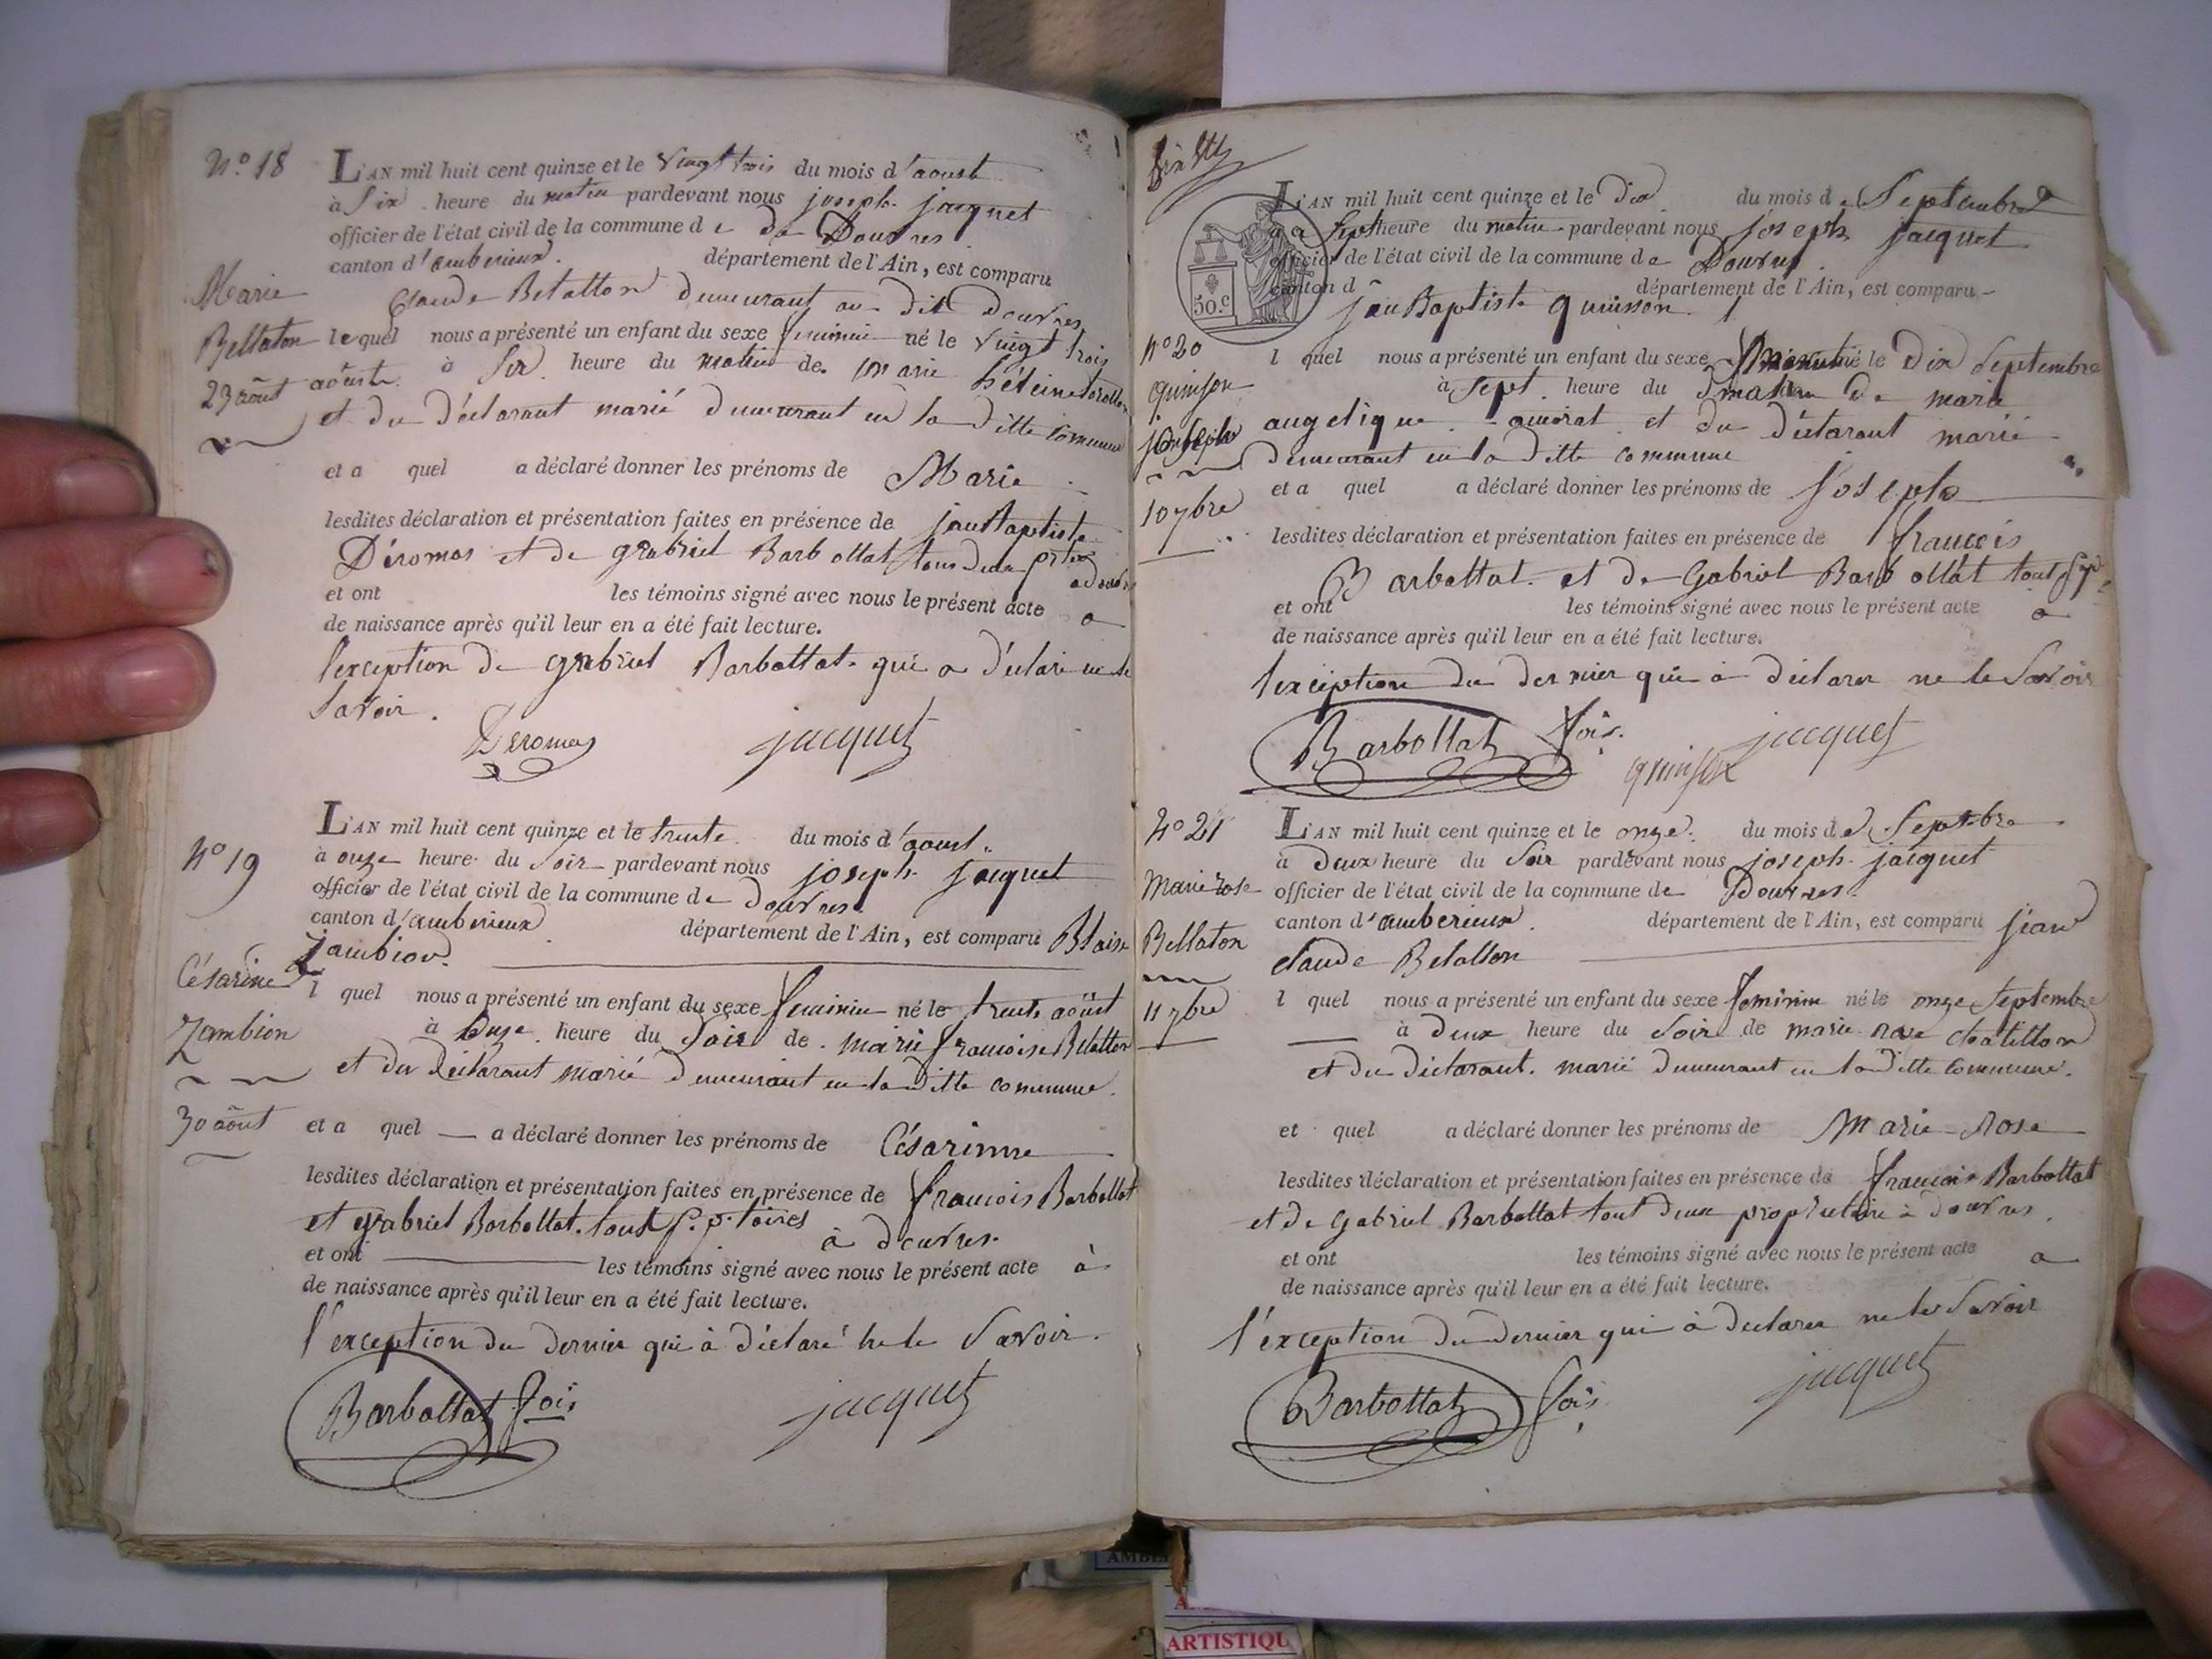 N° 18
L'AN mil huit cent quinze et le vingt trois du mois d'aoust
à Six heure du matin pardevant nous joseph jacquet
officier de l'état civil de la commune de de Douvres
canton d'amberieux. département de l'Ain, est comparu
Claude Belatton demeurant au dit douvres
Marie
Bellaton
23 août
lequel nous a présenté un enfant du sexe feminin né le vingt trois
aoust à Six heure du matin de marie
et du déclarant marié demeurant en la ditte commune
et a quel a déclaré donner les prénoms de Marie
lesdites déclaration et présentation faites en présence de jean Baptiste
Déromas et de gabriel Barbottat tous deux
et ont les témoins signé avec nous le présent acte a
de naissance après qu'il leur en a été fait lecture.
l'exception de gabriel Barbottat qui a déclaré ne le
Savoir.
Deromas jacquet
N° 19
L'AN mil huit cent quinze et le trente du mois d'aoust.
à onze heure du Soir pardevant nous joseph jacquet
officier de l'état civil de la commune de douvres
canton d'amberieux département de l'Ain, est comparu Blaise
Zambion.
Césarine
Zambion
30 août
l quel nous a présenté un enfant du sexe feminin né le trente août
à Onze heure du Soir de marie francoise Belatton
et du déclarant marié demeurant en la ditte commune.
et a quel a déclaré donner les prénoms de Césarinne
lesdites déclaration et présentation faites en présence de francois Barbottat
et gabriel Barbottat tous à douvres.
et ont les témoins signé avec nous le présent acte à
de naissance après qu'il leur en a été fait lecture.
l'exception du dernier qui à déclaré ne le Savoir.
Barbottat fois jacquet
50.c
L'AN mil huit cent quinze et le Dix du mois de Septembre
a Sept heure du matin pardevant nous joseph jacquet
officier de l'état civil de la commune de Douvres
canton d département de l'Ain, est comparu
jean Baptiste quinson
N° 20
quinson
joseph
10 7bre
l quel nous a présenté un enfant du sexe né le Dix Septembre
à Sept heure du matin de marie
angelique amorat et du déclarant marié
demeurant en la ditte commune
et a quel a déclaré donner les prénoms de joseph
lesdites déclaration et présentation faites en présence de francois
Barbottat. et de Gabriel Barbottat
et ont les témoins signé avec nous le présent acte a
de naissance après qu'il leur en a été fait lecture.
l'exception du dernier qui à déclaré ne le Savoir
Barbottat fois. quinson jacquet
N° 21
L'AN mil huit cent quinze et le onze du mois de Septbre
à Deux heure du Soir pardevant nous joseph jacquet
officier de l'état civil de la commune de Douvres
canton d'amberieux. département de l'Ain, est comparu jean
claude Belatton
Marie rose
Bellaton
11 7bre
l quel nous a présenté un enfant du sexe feminin né le onze Septembre
à deux heure du Soir de marie rose chatillon
et du déclarant. marié demeurant en la ditte commune.
et quel a déclaré donner les prénoms de Marie Rose
lesdites déclaration et présentation faites en présence de francois Barbottat
et de Gabriel Barbottat tout deux proprietaire à douvres.
et ont les témoins signé avec nous le présent acte a
de naissance après qu'il leur en a été fait lecture.
l'exception du dernier qui à declarer ne le Savoir
Barbottat fois jacquet
ARTISTIQU